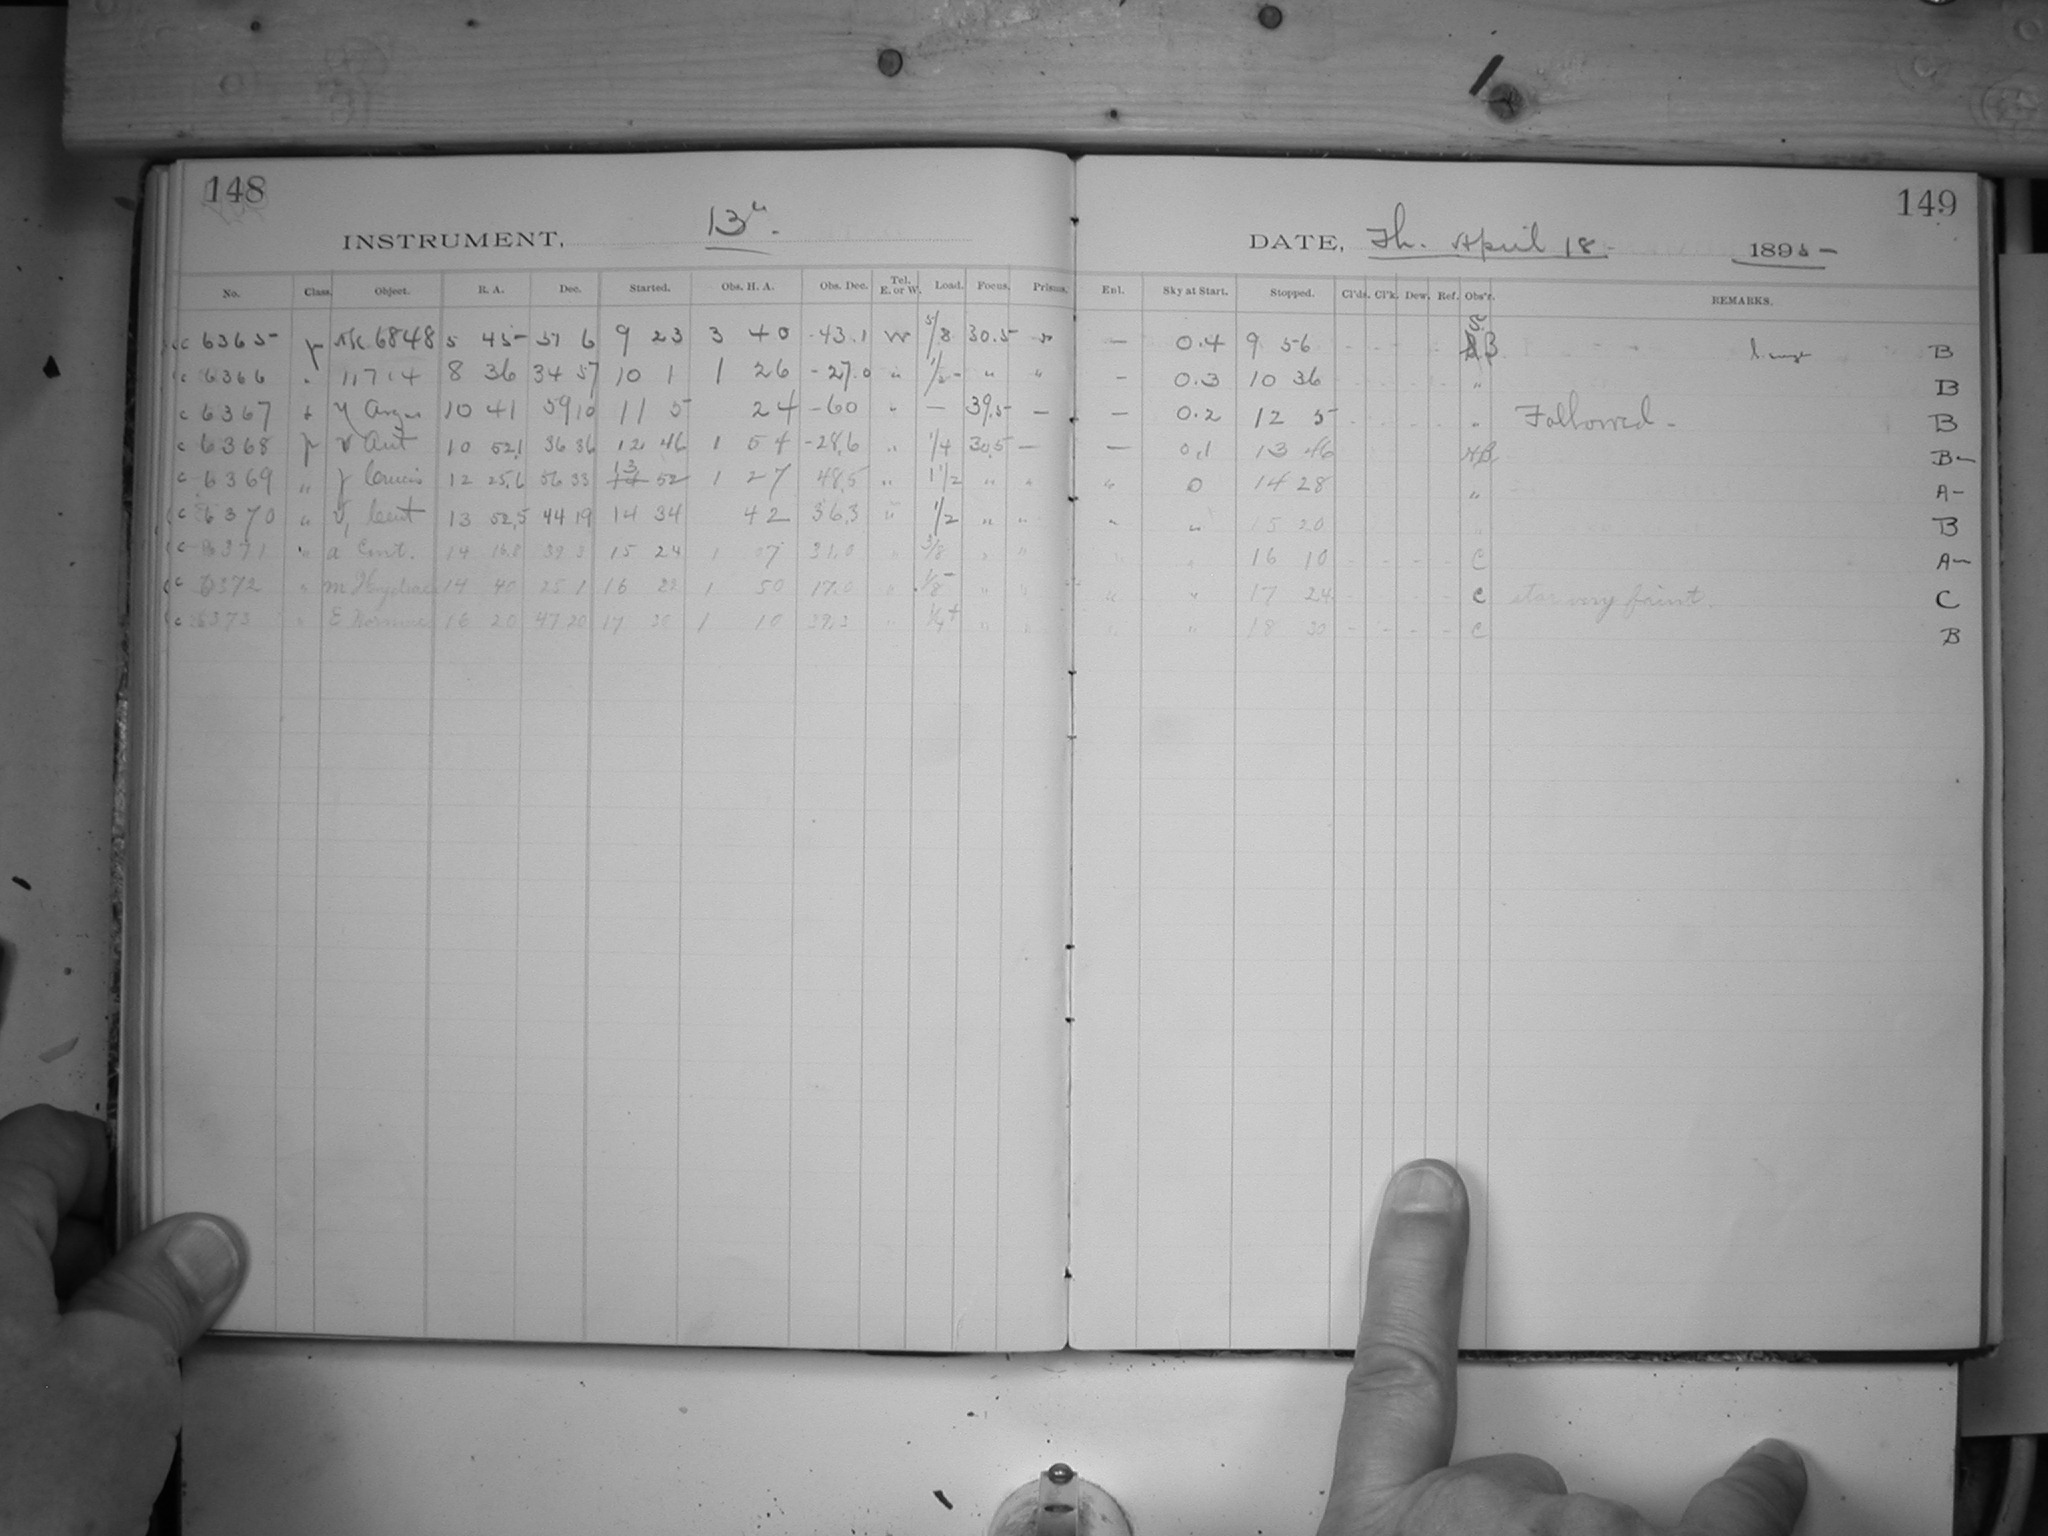 148
INSTRUMENT, 13"
No. Class. Object. R. A. Dec. Started. Obs. H. A. Obs. Dec. Tel. E. or W. Load. Focus. Prisms.
c 6365 6848 5 45 37 6 9 23 3 40 -43.1 W 5/8 30.5 "
c 6366 " 11714 8 36 34 57 10 1 1 26 -27.0 " 1/2- " "
c 6367 η Argus 10 41 59 10 11 5 24 -60 " — 39.5 —
c 6368 Ant 10 52.1 36 36 12 46 1 54 -28.6 " 1/4 30.5 —
c 6369 " γ Crucis 12 25.6 56 33 13 52 1 27 48.5 " 1 1/2 " "
c 6370 " Cent 13 52.5 44 19 14 34 42 36.3 " 1/2 " "
c 6371 " a Cent. 14 16.8 15 24 1 07 31.0 " 3/8 " "
c 6372 " m Hydrae 14 40 25 1 16 22 1 50 17.0 " 1/8- " "
c 6373 " E Normae 16 20 47 20 17 30 1 10 39.3 " 1/4+ " "
149
DATE, Th. April 18 - 1895 -
Enl. Sky at Start. Stopped. Cl'ds. Cl'k. Dew. Ref. Obs'r. REMARKS.
— 0.4 9 56 - - - - S. B B
— 0.3 10 36 - - - - " B
— 0.2 12 5 - - - - " Followed - B
— 0.1 13 46 B-
" 0 14 28 " A-
" " 15 20 " B
" " 16 10 - - - - C A-
" " 17 24 - - - - C star very faint. C
" " 18 30 - - - - C B